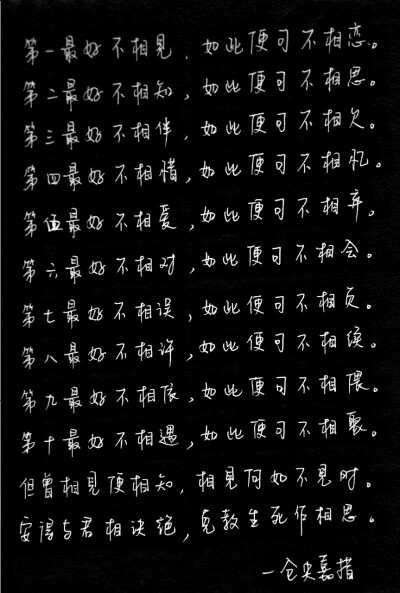 第一最好不相見，如此便可不相恋。
第二最好不相知，如此便可不相思。
第三最好不相伴，如此便可不相欠。
第四最好不相惜，如此便可不相忆。
第伍最好不相爱，如此便可不相弃。
第六最好不相对，如此便可不相会。
第七最好不相误，如此便可不相负。
第八最好不相许，如此便可不相续。
第九最好不相依，如此便可不相偎。
第十最好不相遇，如此便可不相聚。
但曾相見便相知，相見何如不見时。
安得与君相诀绝，免教生死作相思。
—仓央嘉措